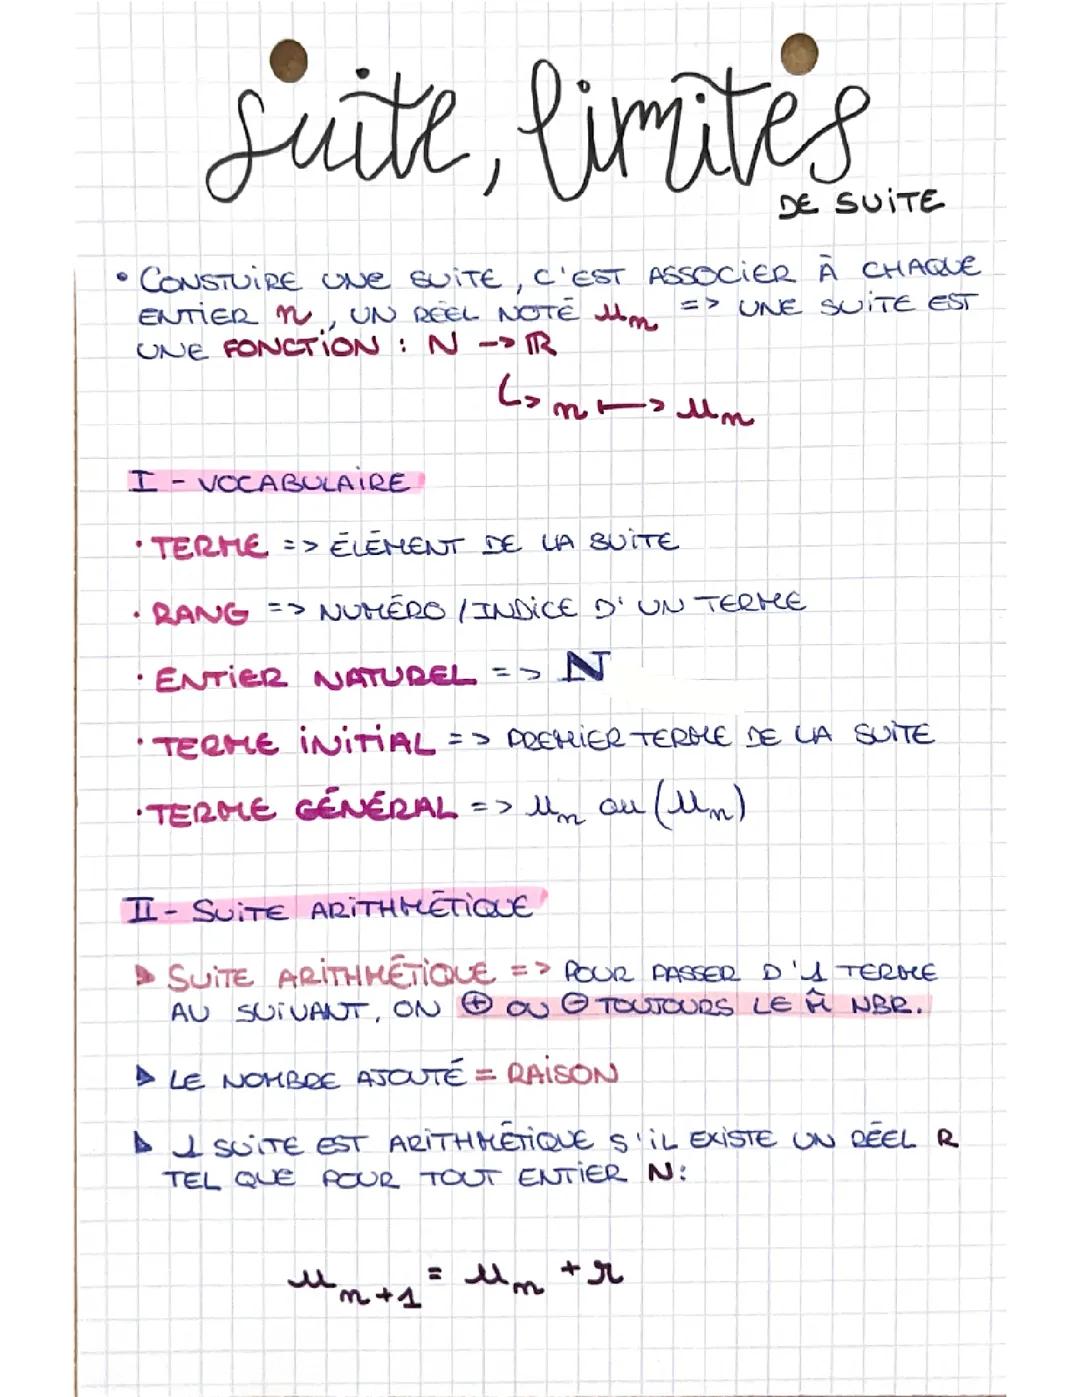 suite, limites
DE SUITE
• CONSTUIRE UNE SUITE, C'EST ASSOCIER À CHAQUE
ENTIER n, UN RÉEL NOTÉ un => UNE SUITE EST
UNE FONCTION : N -> ℝ
↳ n ⟼ un
I - VOCABULAIRE
· TERME => ÉLÉMENT DE LA SUITE
· RANG => NUMÉRO / INDICE D'UN TERME
· ENTIER NATUREL => ℕ
· TERME INITIAL => PREMIER TERME DE LA SUITE
· TERME GÉNÉRAL => un ou (un)
II - SUITE ARITHMÉTIQUE
▶ SUITE ARITHMÉTIQUE => POUR PASSER D'1 TERME
AU SUIVANT, ON ⊕ OU ⊖ TOUJOURS LE M̂ NBR.
▶ LE NOMBRE AJOUTÉ = RAISON
▶ 1 SUITE EST ARITHMÉTIQUE S'IL EXISTE UN RÉEL R
TEL QUE POUR TOUT ENTIER N:
un+1 = un + r